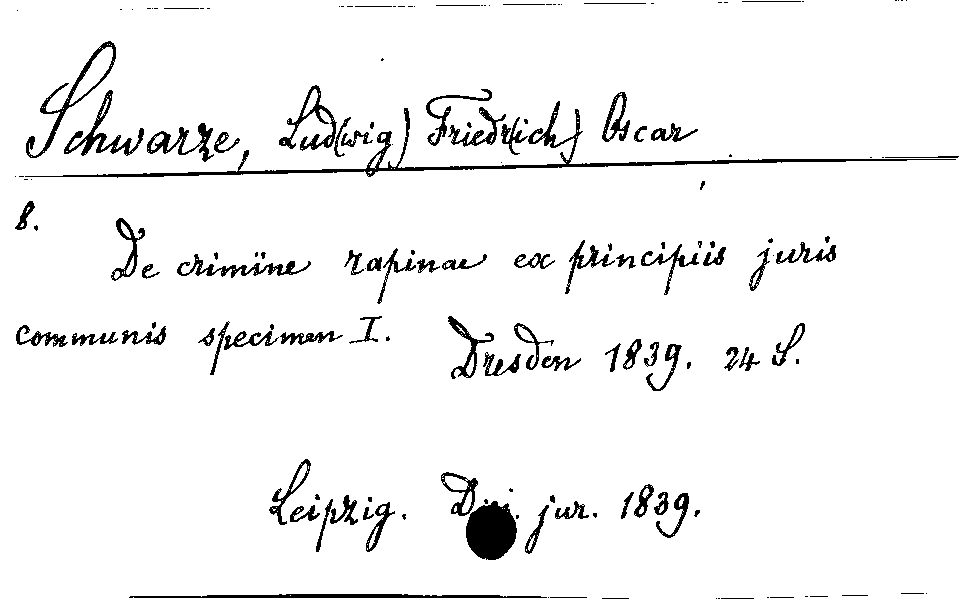 Schwarze, Lud(wig) Friedr(ich) Oscar
8.
De crimine rapinae ex principiis juris
communis specimen I. Dresden 1839. 24 S.
Leipzig. jur. 1839.